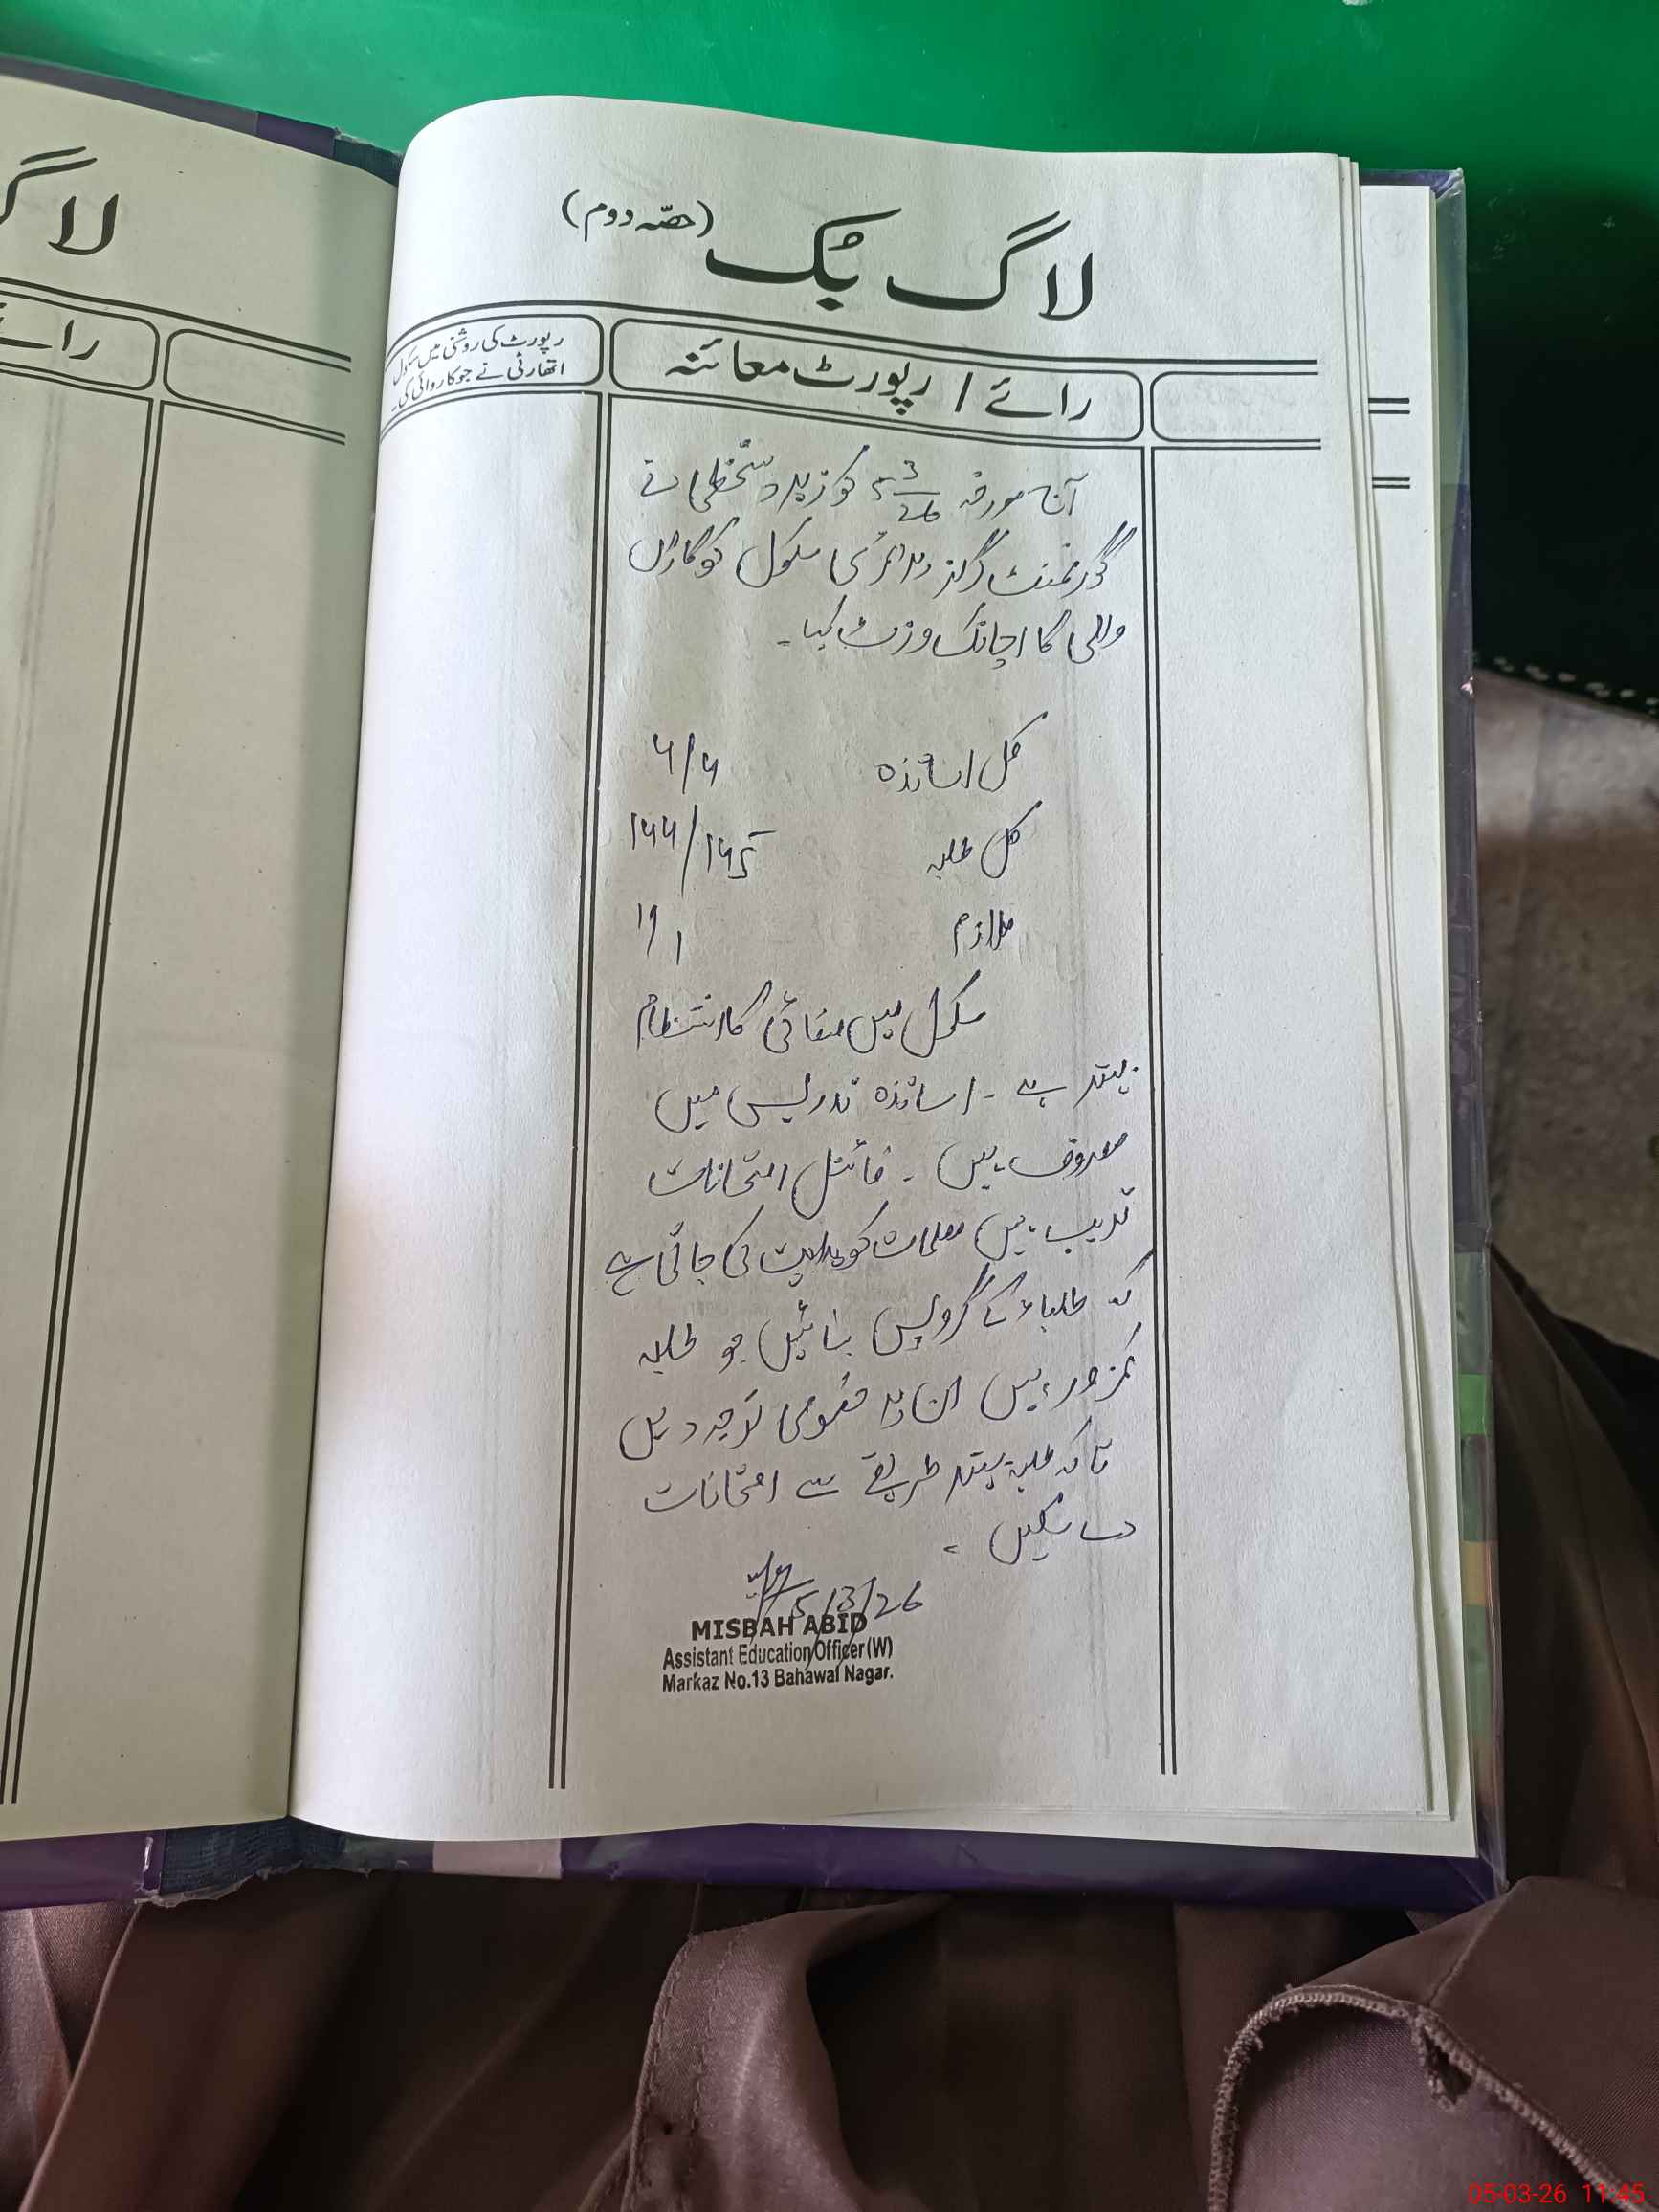 لاگ بک (حصہ دوم)
رپورٹ کی روشنی میں سکول
اتھارٹی نے جو کاروائی کی۔
رائے / رپورٹ معائنہ
آج مورخہ 5 3/26 کو زیر دستخطی نے
گورنمنٹ گرلز پرائمری سکول
والی کا اچانک وزٹ کیا۔
کل اساتذہ ۶/۶
کل طلبہ ۱۶۵/۱۴۴
ملازم ۱/۱
سکول میں صفائی کا انتظام
بہتر ہے۔ اساتذہ تدریس میں
مصروف ہیں۔ فائنل امتحانات
قریب ہیں معلمات کو ہدایت کی جاتی ہے
کہ طلباء کے گروپس بنائیں جو طلبہ
کمزور ہیں ان پر خصوصی توجہ دیں
تاکہ طلبہ بہتر طریقے سے امتحانات
دے سکیں۔
5/3/26
MISBAH ABID
Assistant Education Officer (W)
Markaz No.13 Bahawal Nagar.
لاگ
رائے
05-03-26 11:45